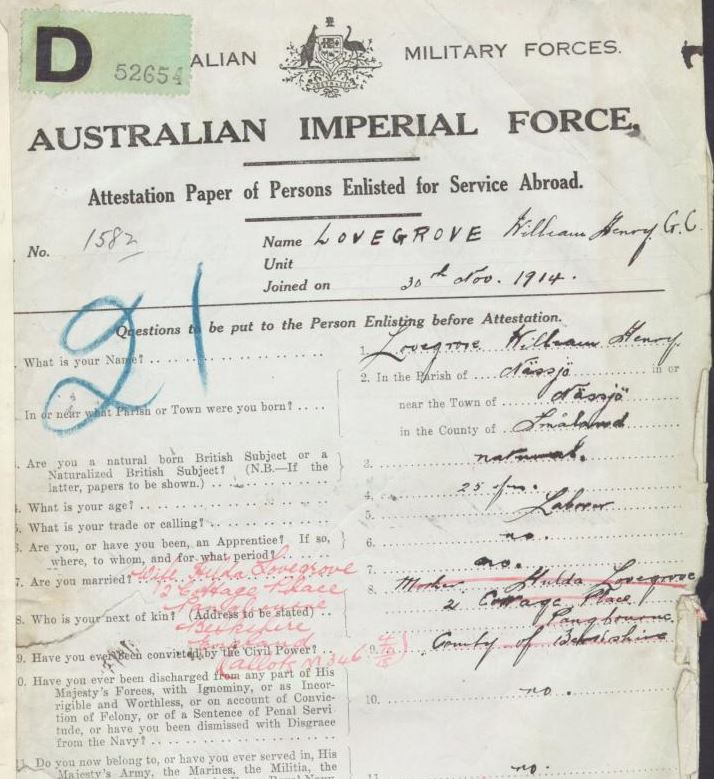 D
52654
ALIAN MILITARY FORCES.
AUSTRALIAN IMPERIAL FORCE,
Attestation Paper of Persons Enlisted for Service Abroad.
No. 1582
Name LOVEGROVE William Henry. G.C.
Unit
Joined on 30th Nov. 1914.
21
Questions to be put to the Person Enlisting before Attestation.
What is your Name?
1. Lovegrove William Henry.
In or near what Parish or Town were you born?
2. In the Parish of Nässjö in or
near the Town of Nässjö
in the County of Småland
3. Are you a natural born British Subject or a
Naturalized British Subject? (N.B.—If the
latter, papers to be shown.)
3. natural.
4. What is your age?
4. 25 yrs.
5. What is your trade or calling?
5. Laborer
6. Are you, or have you been, an Apprentice? If so,
where, to whom, and for what period?
6. no.
7. Are you married?
7. no.
Wife Hulda Lovegrove
2 Cottage Place
Pangbourne
Berkshire
England
8. Who is your next of kin? (Address to be stated)
8. Mother Hulda Lovegrove
2 Cottage Place
Pangbourne
County of Berkshire
9. Have you ever been convicted by the Civil Power?
9.
10. Have you ever been discharged from any part of His
Majesty's Forces, with Ignominy, or as Incor-
rigible and Worthless, or on account of Convic-
tion of Felony, or of a Sentence of Penal Servi-
tude, or have you been dismissed with Disgrace
from the Navy?
10. no.
11. Do you now belong to, or have you ever served in, His
Majesty's Army, the Marines, the Militia, the
11. no.